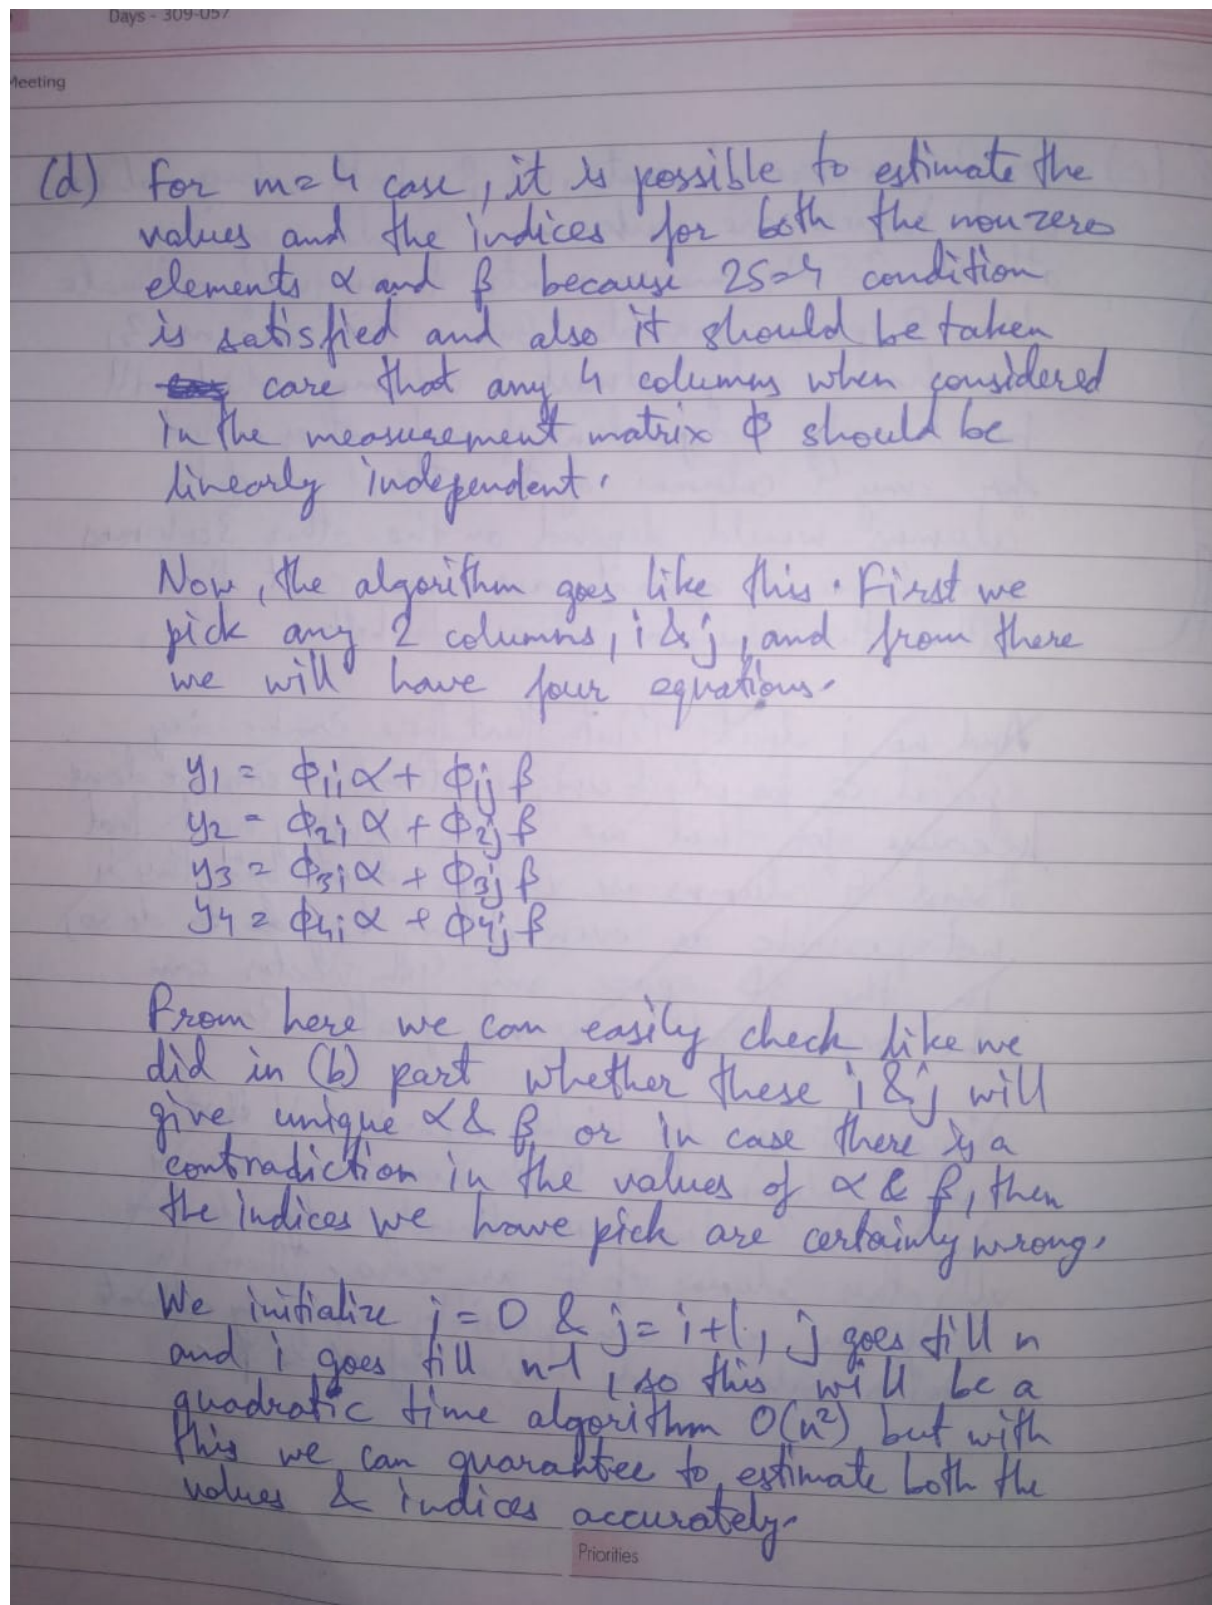 Days - 309-057
Meeting
(d) For m=4 case, it is possible to estimate the
values and the indices for both the non zero
elements α and β because 2S=4 condition
is satisfied and also it should be taken
care that any 4 columns when considered
in the measurement matrix ϕ should be
linearly independent.
Now, the algorithm goes like this. First we
pick any 2 columns, i & j, and from there
we will have four equations.
y1 = ϕ1i α + ϕ1j β
y2 = ϕ2i α + ϕ2j β
y3 = ϕ3i α + ϕ3j β
y4 = ϕ4i α + ϕ4j β
From here we can easily check like we
did in (b) part whether these i & j will
give unique α & β or in case there is a
contradiction in the values of α & β, then
the indices we have pick are certainly wrong.
We initialize i = 0 & j = i+1, j goes till n
and i goes till n-1, so this will be a
quadratic time algorithm O(n²) but with
this we can guarantee to estimate both the
values & indices accurately.
Priorities